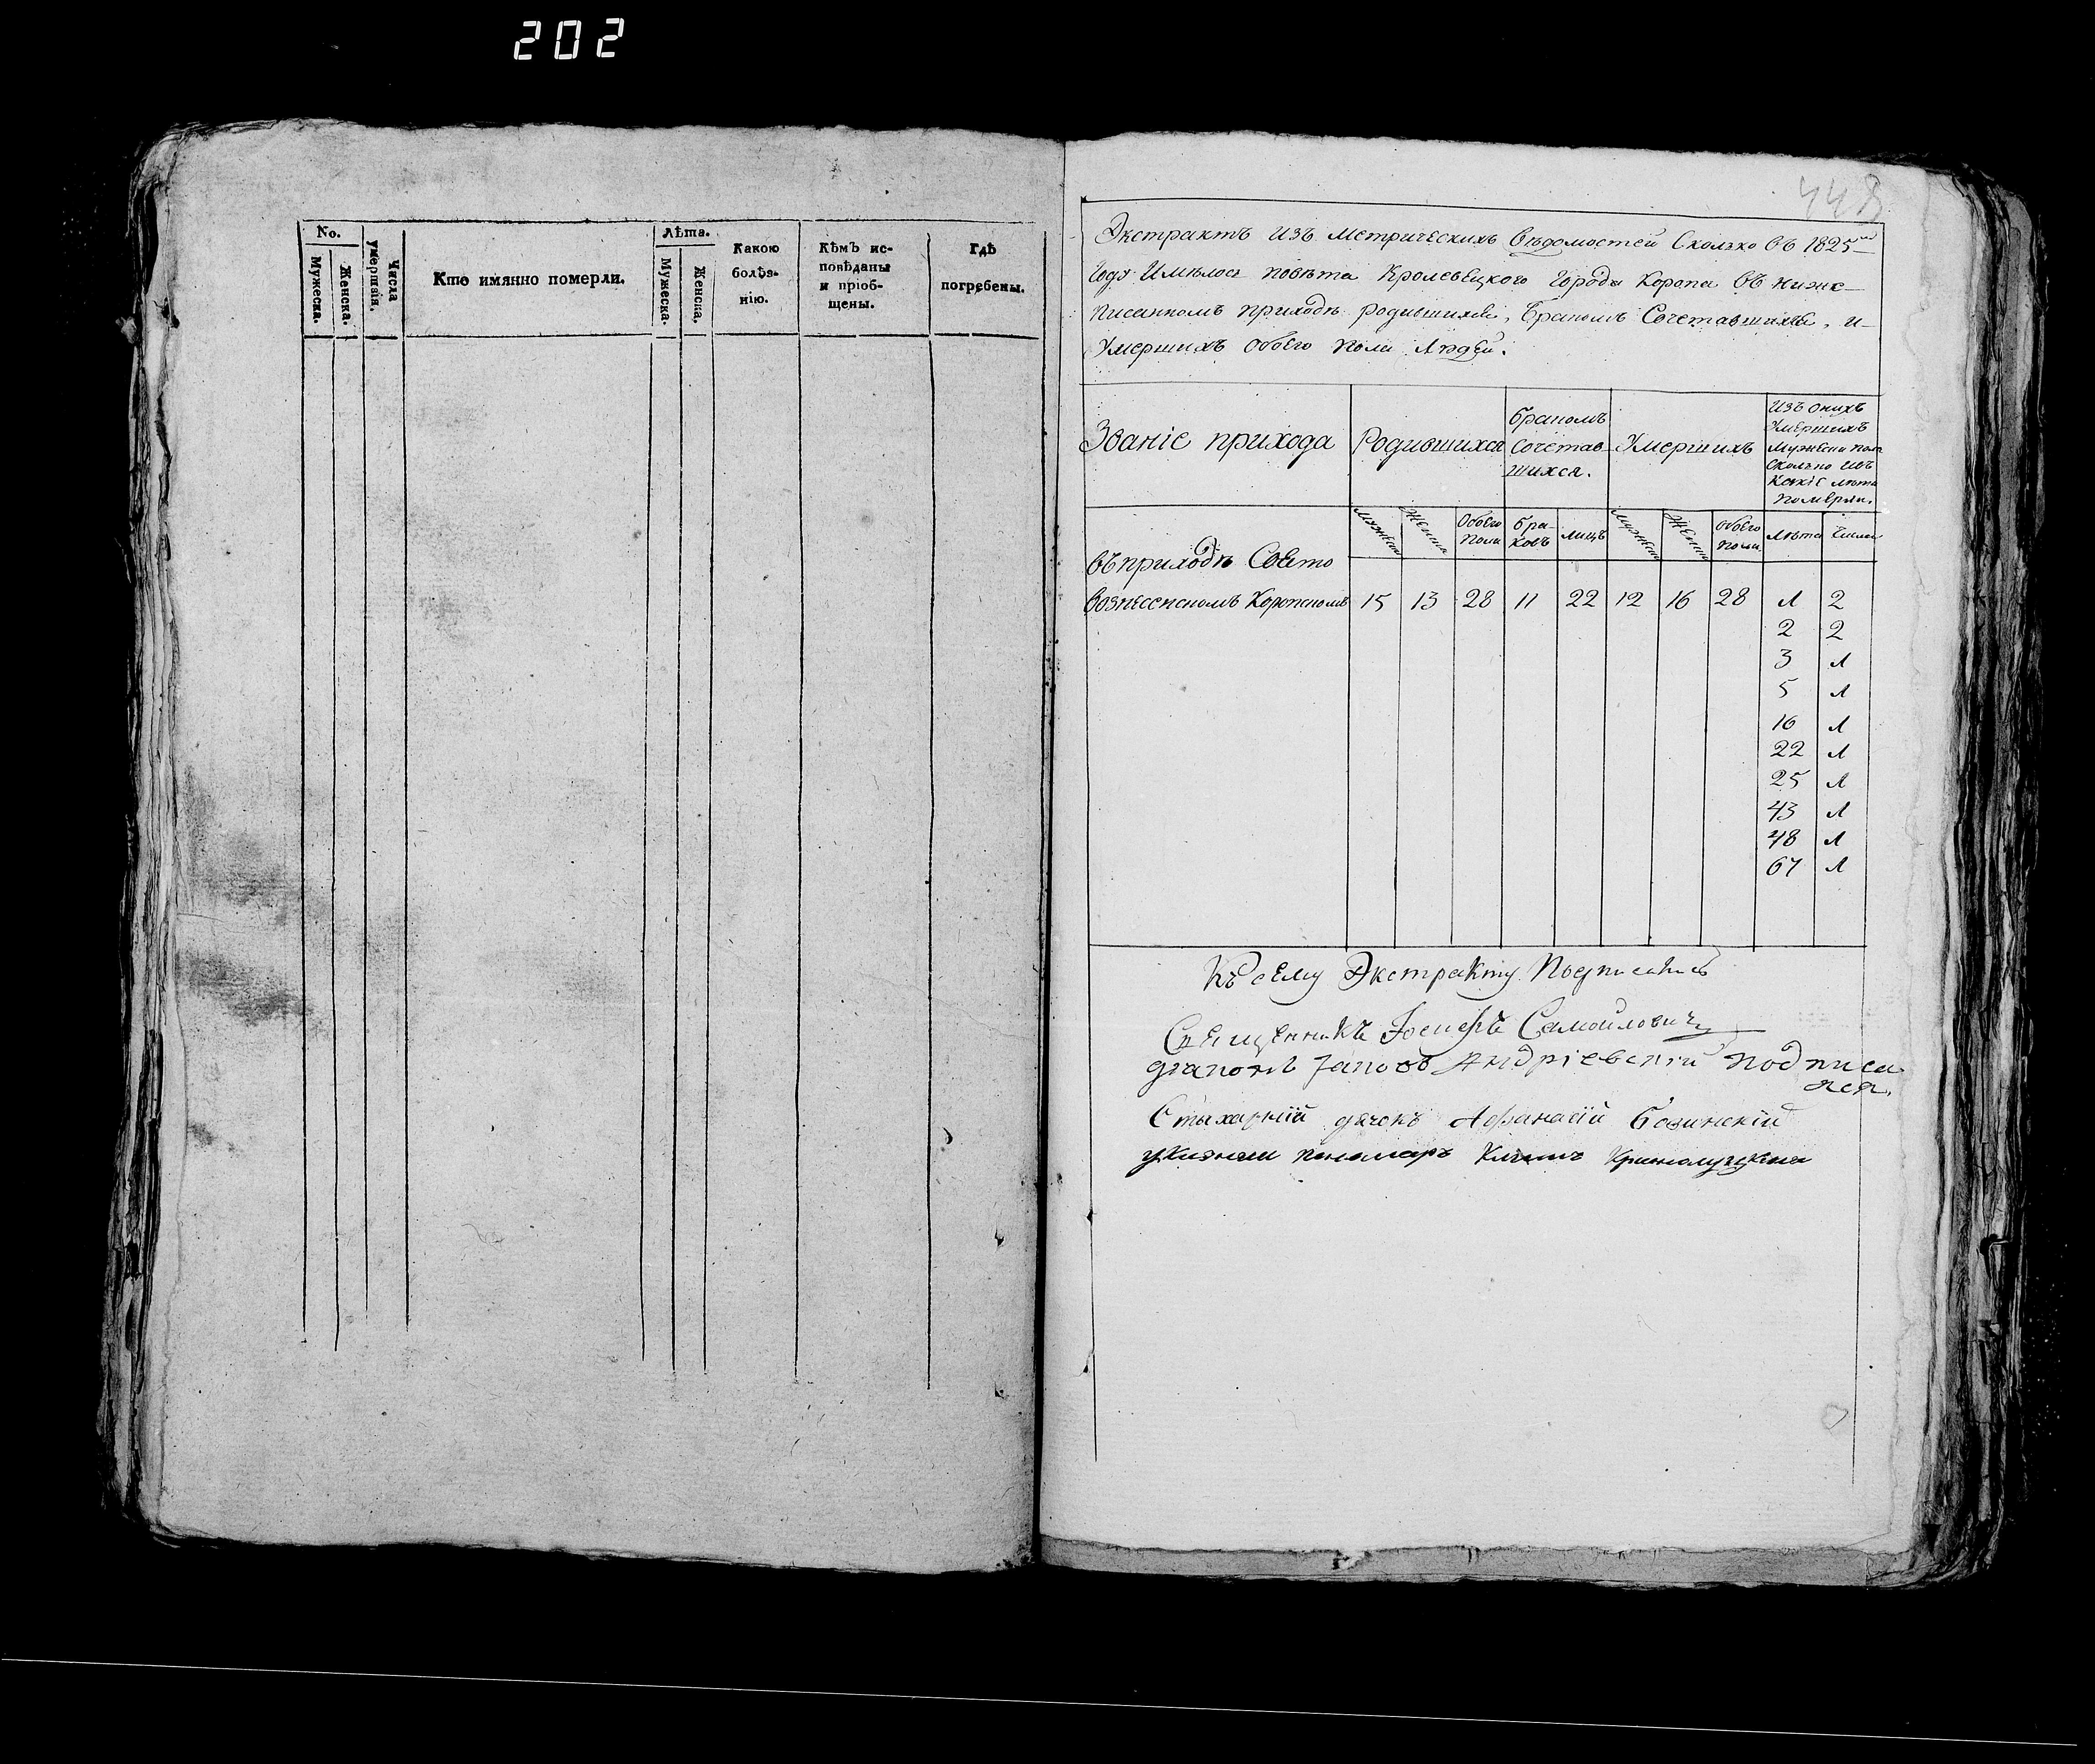 202
No.
Мужеска.
Женска.
Числа умершія.
Кто имянно померли.
Лѣта.
Мужеска.
Женска.
Какою
болѣз-
нію.
Кѣмъ ис-
повѣданы
и пріоб-
щены.
Гдѣ
погребены.
448
Экстрактъ изъ Метрическихъ Вѣдомостей Сколько въ 1825
Году Имѣлось повѣта Кролевецкого Города Коропа въ ниже-
писанномъ приходѣ родившихся, Бракомъ Сочетавшихся, и-
Умершихъ обоего пола Людей.
Званіе прихода
Родившихся
бракомъ
Сочетав-
шихся.
Умершихъ
Изъ оныхъ
Умершихъ
Мужеска пола
Сколько въ
Какіе лѣта
померли.
мужеска
Женска
Обоего
пола
бра-
ковъ
лицъ
мужеска
Женска
обоего
пола
лѣта
число
въ приходѣ Свято
Вознесенскомъ Коропскомъ 15 13 28 11 22 12 16 28 1 2
2 2
3 1
5 1
16 1
22 1
25 1
43 1
48 1
67 1
Къ сему Экстракту Подписались
Священникъ Іосифъ Самойловичъ
діаконъ Іаковъ Андріевскій подписа
лся.
Стихарный дячокъ Афанасій
пономаръ Климъ